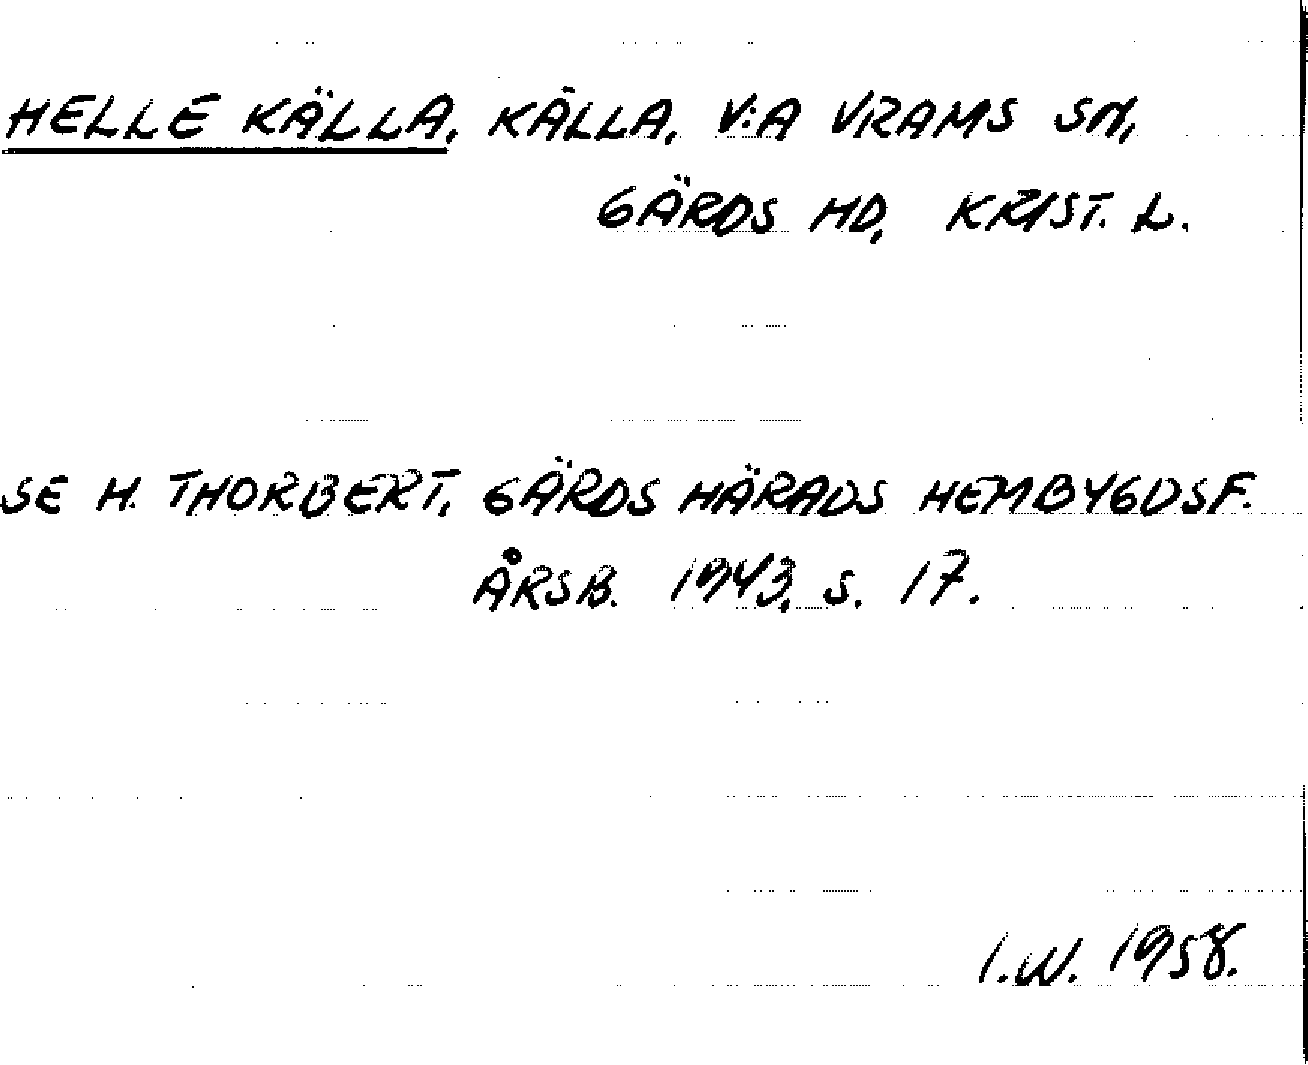 HELLE KÄLLA, KÄLLA, V:A VRAMS SN,
GÄRDS HD, KRIST. L.
SE H. THORBERT, GÄRDS HÄRADS HEMBYGDSF.
ÅRSB. 1943, S. 17.
I.W. 1958.